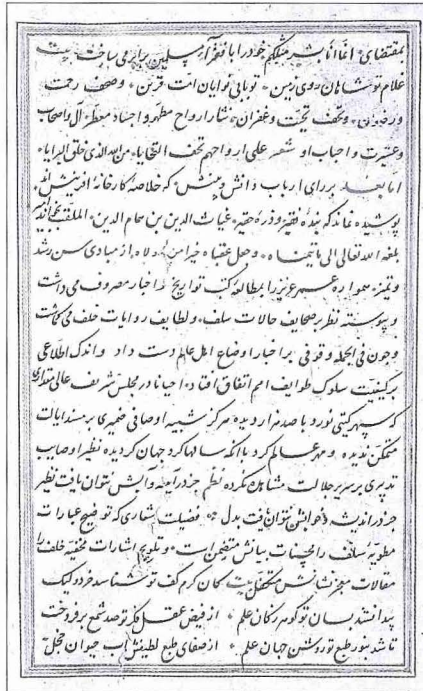 بمقتضای انما انا بشر مثلکم خود را با فقرای مسلمین برابر می ساخت بیت
غلام تو شاهان روی زمین توبائی گدایان امت قرین و صحف رحمت
و رضوان و تحف تحیت و غفران نثار ارواح مطهر و اجساد معطر آل و اصحاب
و عترت و احباب او شعر علی ارواحهم تحف التحایا من الله الذی خلق البرایا
اما بعد بر رای ارباب دانش و بینش که خلاصه کارخانه آفرینش اند
پوشیده نماند که بنده فقیر و ذره حقیر غیاث الدین بن همام الدین الملقب بخواندمیر
بلغه الله تعالی الی ما یتمناه و جعل عقباه خیرا من اولاه از مبادی سن رشد
و تمیز همواره عمر عزیز را بمطالعه کتب تواریخ و اخبار مصروف می داشت
و پیوسته نظر بر صحایف حالات سلف و لطایف روایات خلف می گماشت
و چون فی الجمله وقوفی بر اخبار و اوضاع اهل عالم دست داد و اندک اطلاعی
بر کیفیت سلوک طوایف امم اتفاق افتاد احیانا در مجلس شریف عالی مقداری
که سپهر گیتی نورد با صد هزار دیده مرکز شبیه او صافی ضمیری بر مسند ایالت
متمکن ندیده و مهر عالم گرد با آنکه سالها گرد جهان گردیده نظیر او صایب
تدبیری بر سریر جلالت مشاهده نکرده نظم جز در آینه و آبش نتوان یافت نظیر
جز در اندیشه و خوابش نتوان یافت بدل فضیلت شعاری که توضیح عبارات
مطویه سلف را محسنات بیانش متضمن است و تلویح اشارات مخفیه خلف را
مقالات معجز نشانش متکفل بیت کان کرم کف تو شناسد خرد و لیک
پیدا نشد بسان تو گوهر ز کان علم از فیض عقل فکر تو صد شمع برفروخت
تا شد بنور طبع تو روشن جهان علم از صفای طبع لطیفش آب حیوان خجل